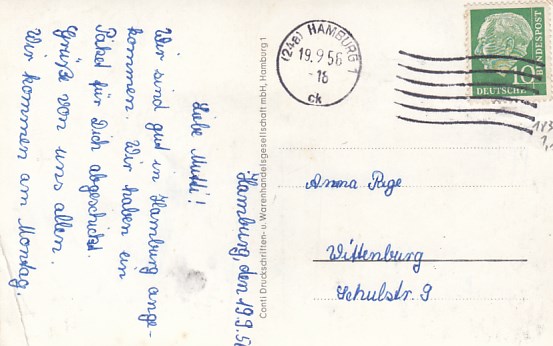 Hamburg, den 19.9.56
Liebe Mutti!
Wir sind gut in Hamburg ange-
kommen. Wir haben ein
Paket für Dich abgeschickt.
Grüße von uns allen.
Wir kommen am Montag.
Conti Druckschriften- u. Warenhandelsgesellschaft mbH, Hamburg 1
(24a) HAMBURG 1
19.9.56
-18
ck
10
DEUTSCHE
BUNDESPOST
Anna Rige
Wittenburg
Schulstr. 9